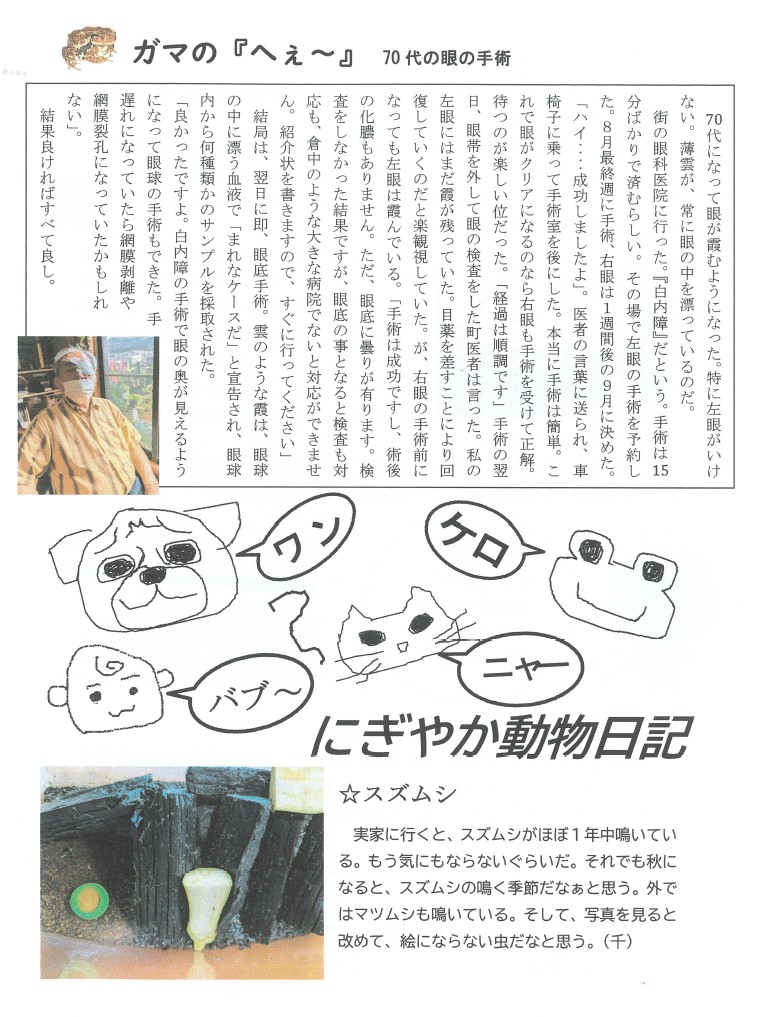 ガマの『へぇ～』 70代の眼の手術
70代になって眼が霞むようになった。特に左眼がいけ
ない。薄雲が、常に眼の中を漂っているのだ。
街の眼科医院に行った。『白内障』だという。手術は15
分ばかりで済むらしい。その場で左眼の手術を予約し
た。8月最終週に手術、右眼は1週間後の9月に決めた。
「ハイ・・・成功しましたよ」。医者の言葉に送られ、車
椅子に乗って手術室を後にした。本当に手術は簡単。こ
れで眼がクリアになるのなら右眼も手術を受けて正解。
待つのが楽しい位だった。「経過は順調です」手術の翌
日、眼帯を外して眼の検査をした町医者は言った。私の
左眼にはまだ霞が残っていた。目薬を差すことにより回
復していくのだと楽観視していた。が、右眼の手術前に
なっても左眼は霞んでいる。「手術は成功ですし、術後
の化膿もありません。ただ、眼底に曇りが有ります。検
査をしなかった結果ですが、眼底の事となると検査も対
応も、倉中のような大きな病院でないと対応ができませ
ん。紹介状を書きますので、すぐに行ってください」
結局は、翌日に即、眼底手術。雲のような霞は、眼球
の中に漂う血液で「まれなケースだ」と宣告され、眼球
内から何種類かのサンプルを採取された。
「良かったですよ。白内障の手術で眼の奥が見えるよう
になって眼球の手術もできた。手
遅れになっていたら網膜剥離や
網膜裂孔になっていたかもしれ
ない」。
結果良ければすべて良し。
ワン
ケロ
ニャー
バブ～
にぎやか動物日記
☆スズムシ
実家に行くと、スズムシがほぼ1年中鳴いてい
る。もう気にもならないぐらいだ。それでも秋に
なると、スズムシの鳴く季節だなぁと思う。外で
はマツムシも鳴いている。そして、写真を見ると
改めて、絵にならない虫だなと思う。（千）